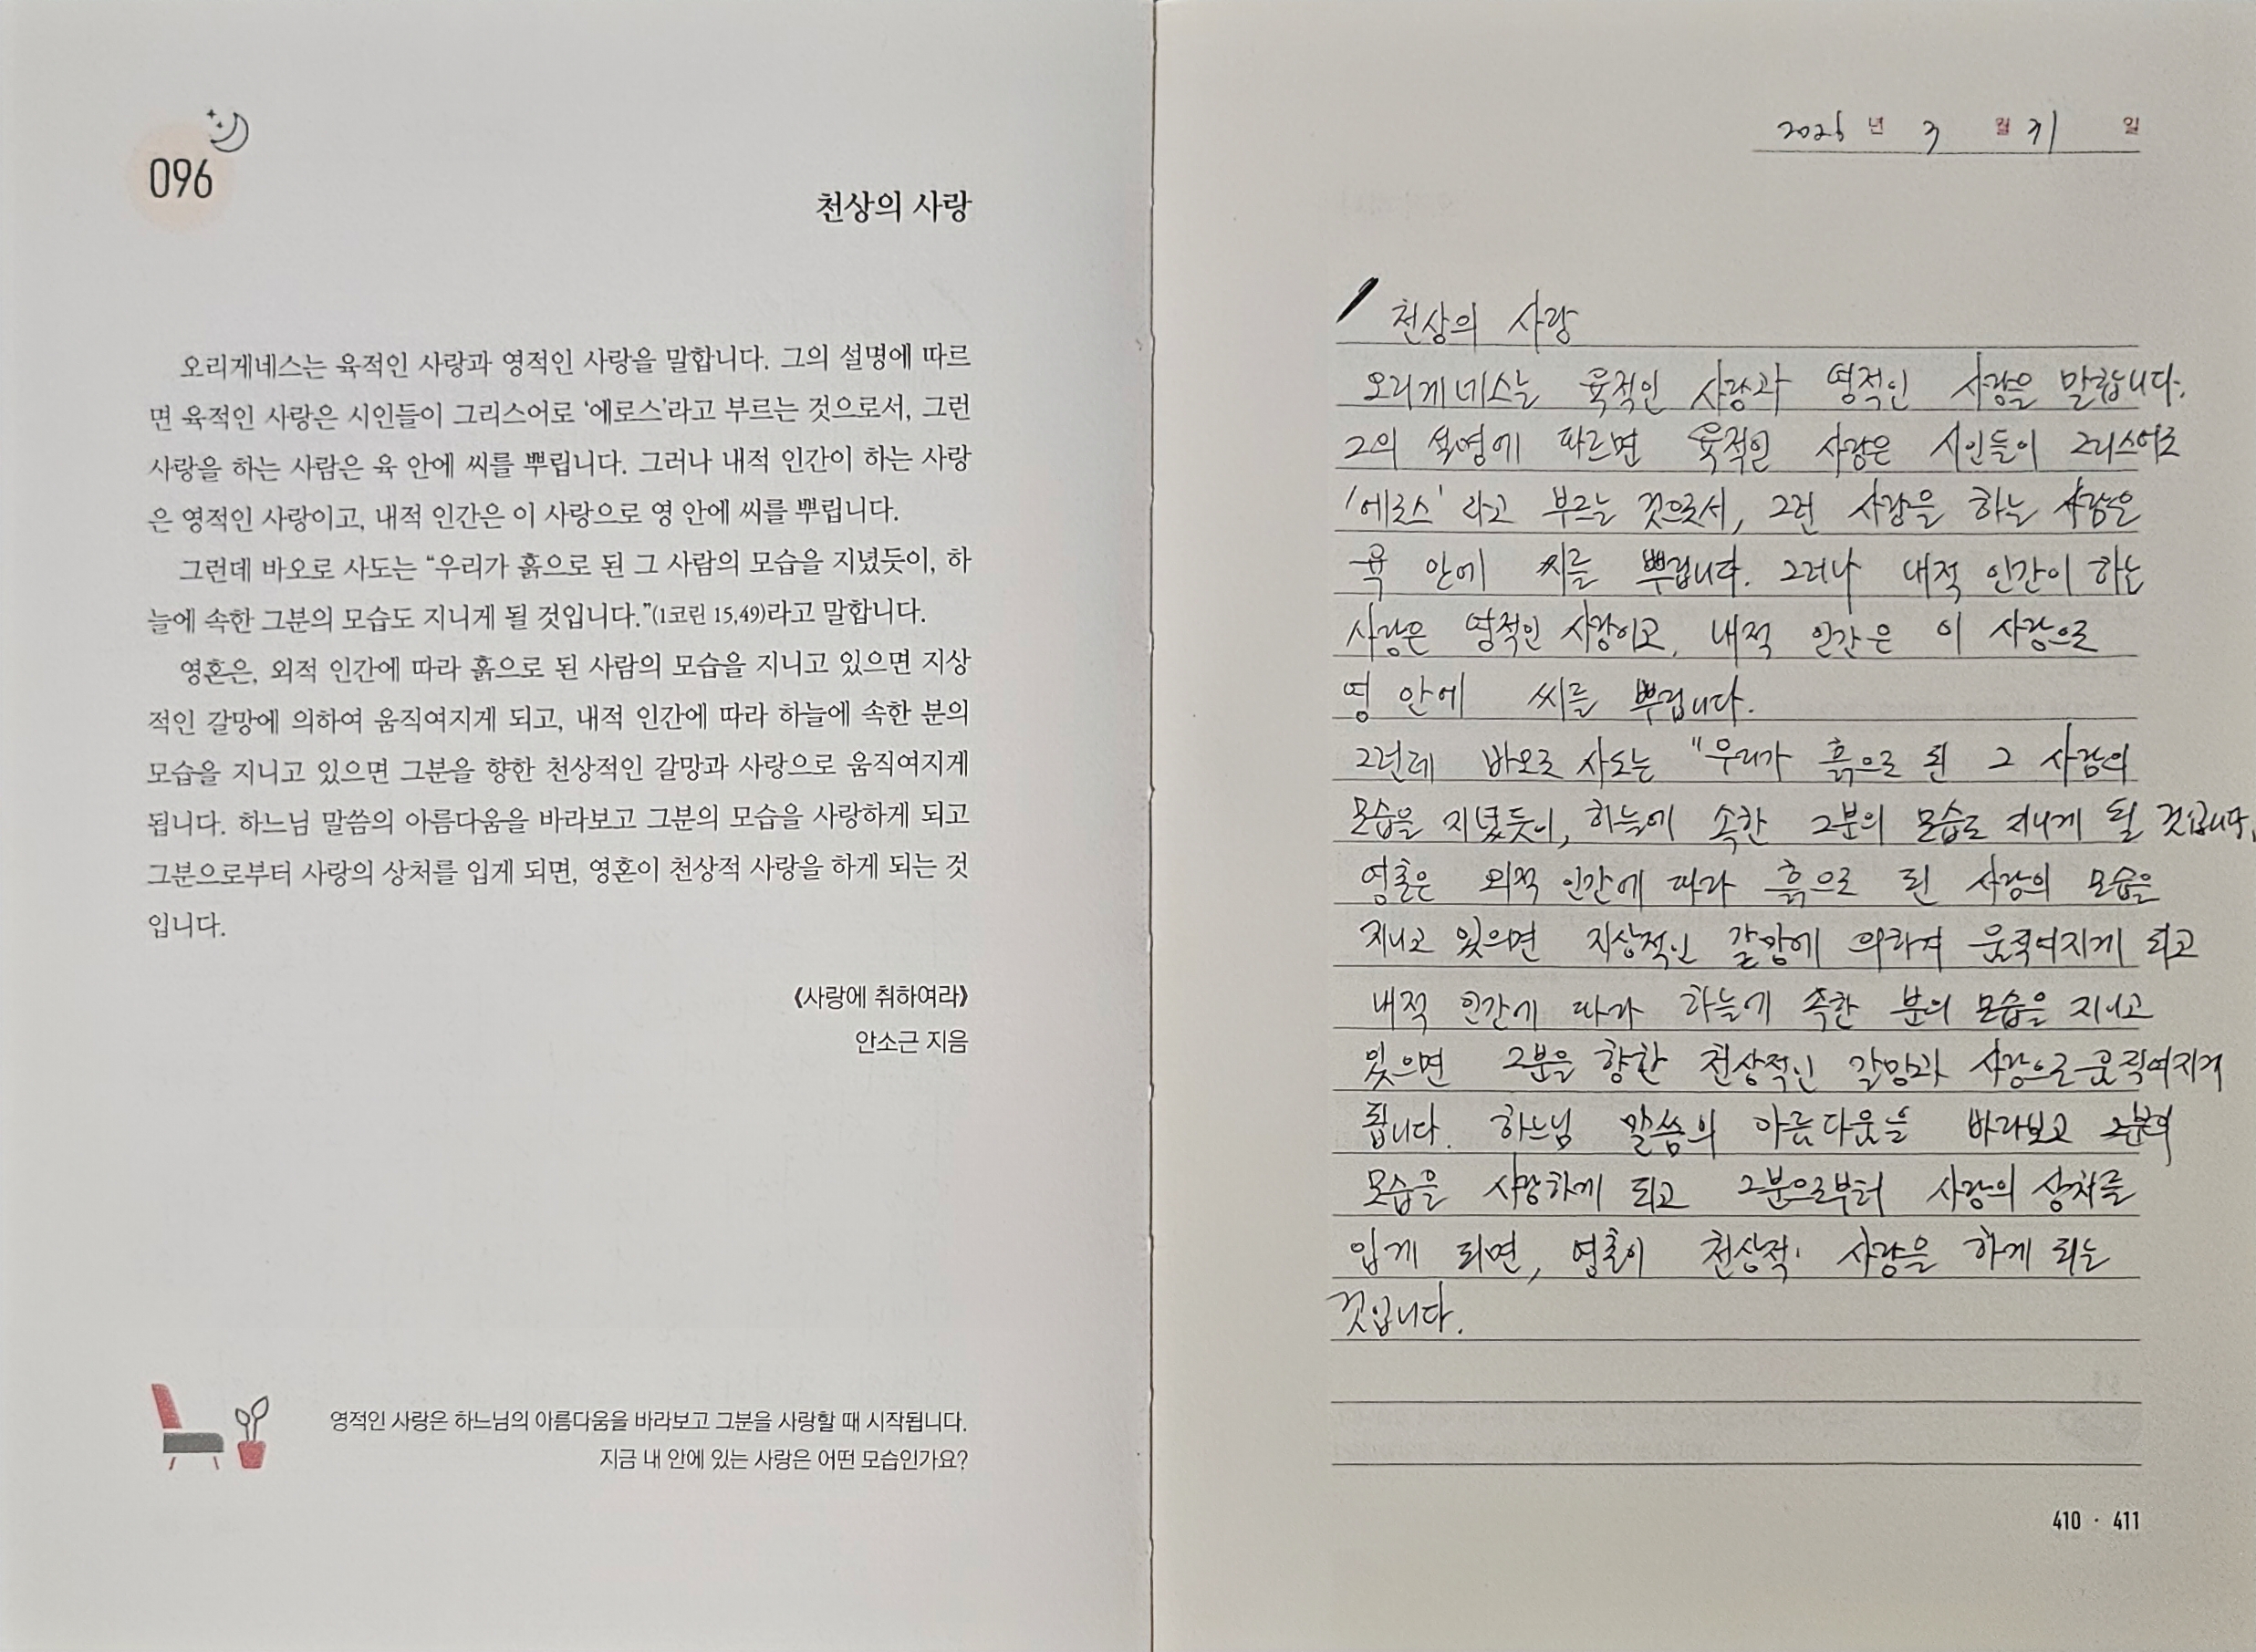 096
천상의 사랑
오리게네스는 육적인 사랑과 영적인 사랑을 말합니다. 그의 설명에 따르
면 육적인 사랑은 시인들이 그리스어로 ‘에로스’라고 부르는 것으로서, 그런
사랑을 하는 사람은 육 안에 씨를 뿌립니다. 그러나 내적 인간이 하는 사랑
은 영적인 사랑이고, 내적 인간은 이 사랑으로 영 안에 씨를 뿌립니다.
그런데 바오로 사도는 “우리가 흙으로 된 그 사람의 모습을 지녔듯이, 하
늘에 속한 그분의 모습도 지니게 될 것입니다.”(1코린 15,49)라고 말합니다.
영혼은, 외적 인간에 따라 흙으로 된 사람의 모습을 지니고 있으면 지상
적인 갈망에 의하여 움직여지게 되고, 내적 인간에 따라 하늘에 속한 분의
모습을 지니고 있으면 그분을 향한 천상적인 갈망과 사랑으로 움직여지게
됩니다. 하느님 말씀의 아름다움을 바라보고 그분의 모습을 사랑하게 되고
그분으로부터 사랑의 상처를 입게 되면, 영혼이 천상적 사랑을 하게 되는 것
입니다.
《사랑에 취하여라》
안소근 지음
영적인 사랑은 하느님의 아름다움을 바라보고 그분을 사랑할 때 시작됩니다.
지금 내 안에 있는 사랑은 어떤 모습인가요?
년 3 월 31 일
천상의 사랑
오리게네스는 육적인 사랑과 영적인 사랑을 말합니다.
그의 설명에 따르면 육적인 사랑은 시인들이 그리스어로
'에로스' 라고 부르는 것으로서, 그런 사랑을 하는 사람은
육 안에 씨를 뿌립니다. 그러나 내적 인간이 하는
사랑은 영적인 사랑이고, 내적 인간은 이 사랑으로
영 안에 씨를 뿌립니다.
그런데 바오로 사도는 "우리가 흙으로 된 그 사람의
모습을 지녔듯이, 하늘에 속한 그분의 모습도 지니게 될 것입니다.
영혼은 외적 인간에 따라 흙으로 된 사람의 모습을
지니고 있으면 지상적인 갈망에 의하여 움직여지게 되고
내적 인간에 따라 하늘에 속한 분의 모습을 지니고
있으면 그분을 향한 천상적인 갈망과 사랑으로 움직여지게
됩니다. 하느님 말씀의 아름다움을 바라보고 그분의
모습을 사랑하게 되고 그분으로부터 사랑의 상처를
입게 되면, 영혼이 천상적 사랑을 하게 되는
것입니다.
410 · 411